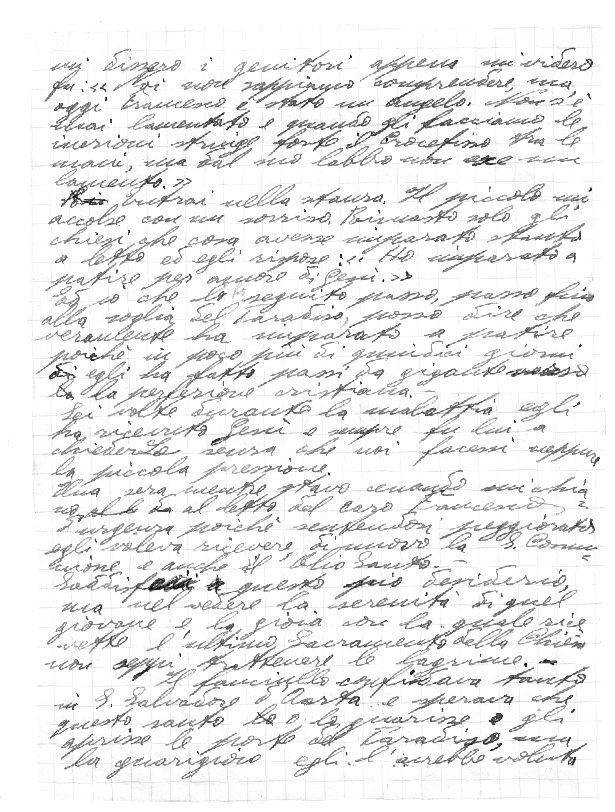 mi dissero i genitori appena mi videro
fu: « Noi non sappiamo comprendere, ma
oggi Francesco è stato un angelo. Non s'è
mai lamentato e quando gli facciamo le
iniezioni stringe forte il Crocefisso tra le
mani, ma dal suo labbro non esce un
lamento. »
Entrai nella stanza. Il piccolo mi
accolse con un sorriso. Rimasto solo gli
chiesi che cosa avesse imparato stando
a letto ed egli rispose: « Ho imparato a
patire per amore di Gesù. »
Ed io che l'ho seguito passo, passo fino
alla soglia del Paradiso, posso dire che
veramente ha imparato a patire
poichè in poco più di quindici giorni
egli ha fatto passi da gigante verso
la perfezione cristiana.
Sei volte durante la malattia egli
ha ricevuto Gesù e sempre fu lui a
chiederLo senza che noi facessi neppure
la piccola pressione.
Una sera mentre stavo cenando mi chia-
al letto del caro Francesco
d'urgenza poichè sentendosi peggiorato
egli voleva ricevere di nuovo la S. Comu-
nione e anche il Olio Santo.
a questo suo desiderio,
ma nel vedere la serenità di quel
giovane e la gioia con la quale rice
vette l'ultimo Sacramento della Chiesa
non seppi trattenere le lagrime. -
Il fanciullo confidava tanto
in S. Salvatore d'Horta e sperava che
questo santo o lo guarisse o gli
aprisse le porte del Paradiso, ma
la guarigione egli l'avrebbe voluta